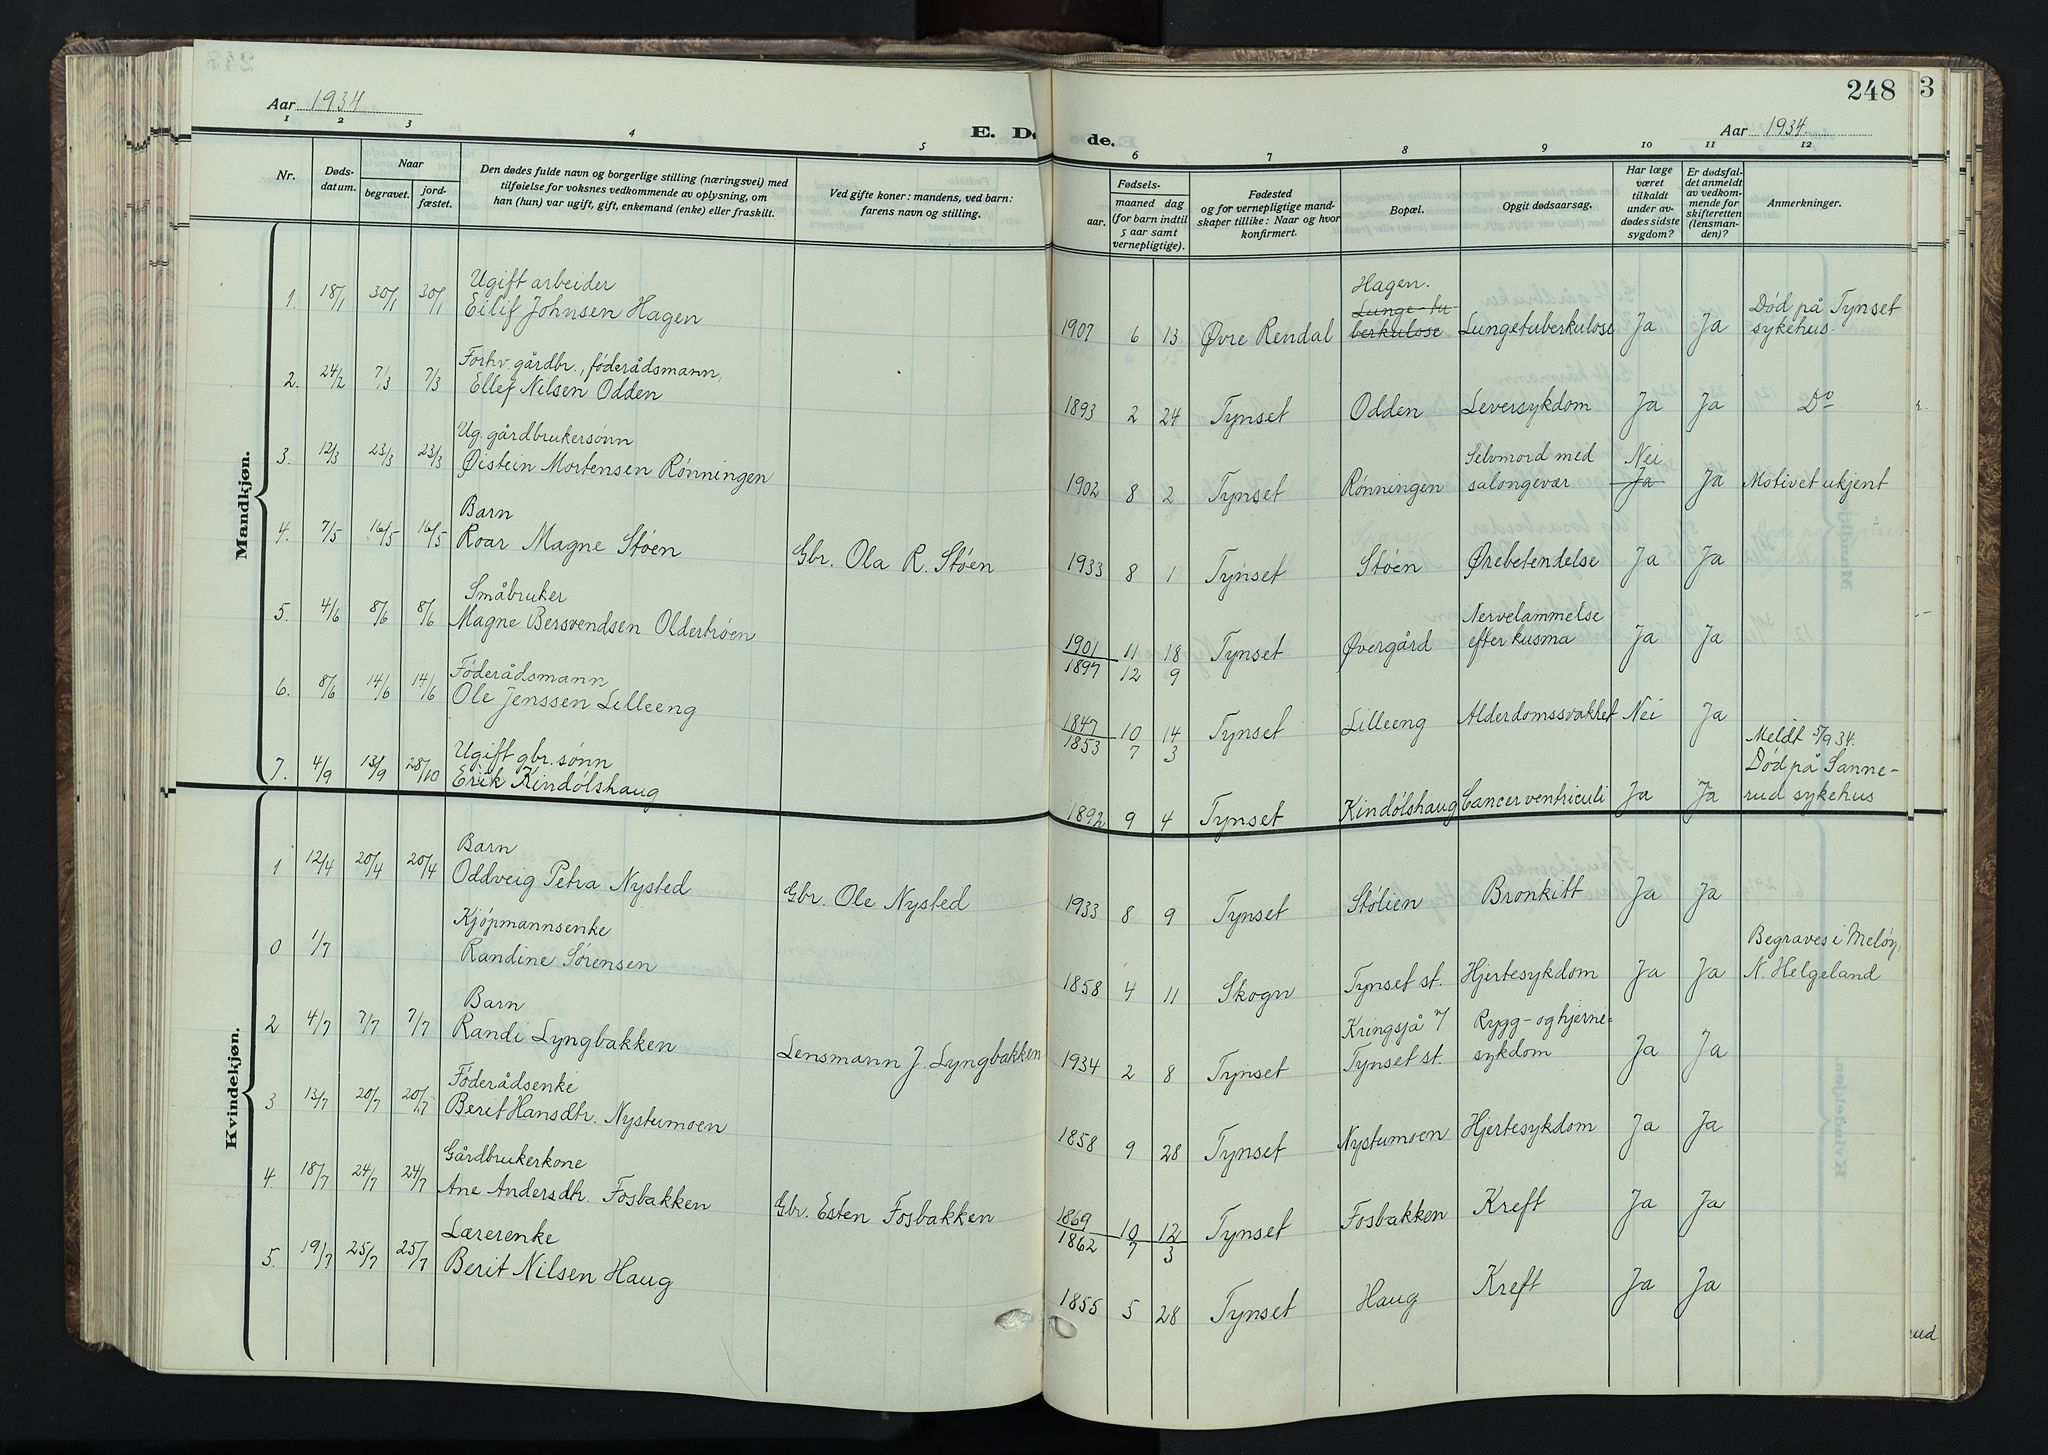 248
3
Aar 1934
Aar 1934
E. Dø
de.
1 2 3 4 5 6 7 8 9 10 11 12
Nr.
Dødsdatum.
Naar
begravet.
jordfæstet.
Den dødes fulde navn og borgerlige stilling (næringsvei) med
tilføielse for voksnes vedkommende av oplysning, om
han (hun) var ugift, gift, enkemand (enke) eller fraskilt.
Ved gifte koner: mandens, ved barn:
farens navn og stilling.
Fødsels-
aar.
maaned dag
(for barn indtil
5 aar samt
vernepligtige).
Fødested
og for vernepligtige mand-
skaper tillike: Naar og hvor
konfirmert.
Bopæl.
Opgit dødsaarsag.
Har læge
været
tilkaldt
under av-
dødes sidste
sygdom?
Er dødsfal-
det anmeldt
av vedkom-
mende for
skifteretten
(lensman-
den)?
Anmerkninger.
Mandkjøn.
1. 18/1 30/1 30/1 Ugift arbeider
Eilif Johnsen Hagen
1907 6 13 Øvre Rendal Hagen.
Lunge-tu-
berkulose Lungetuberkulose Ja Ja Død på Tynset
sykehus.
2. 24/2 7/3 7/3 Forhv. gårdbr., føderådsmann,
Ellef Nilsen Odden
1893 2 24 Tynset Odden Leversykdom Ja Ja Do
3. 12/3 23/3 23/3 Ug. gårdbrukersønn
Øistein Mortensen Rønningen
1902 8 2 Tynset Rønningen Selvmord med
salongevær Nei
Ja Ja Motivet ukjent
4. 7/5 16/5 16/5 Barn
Roar Magne Støen Gbr. Ola R. Støen
1933 8 1 Tynset Støen Ørebetendelse Ja Ja
5. 4/6 8/6 8/6 Småbruker
Magne Bersvendsen Oldertrøen
1901 11 18 Tynset Øvergård Nervelammelse
efter kusma Ja Ja
1897 12 9
6. 8/6 14/6 14/6 Føderådsmann
Ole Jenssen Lilleeng
1847 10 14 Tynset Lilleeng Alderdomssvakhet Nei Ja
1853 7 3
7. 4/9 13/9 28/10 Ugift gbr.sønn
Erik Kindølshaug
1892 9 4 Tynset Kindølshaug Cancer ventriculi Ja Ja Meldt 5/9 34.
Død på Sanne-
rud sykehus
Kvindekjøn.
1 12/4 20/4 20/4 Barn
Oddveig Petra Nysted Gbr. Ole Nysted
1933 8 9 Tynset Stølien Bronkitt Ja Ja
0 1/7 Kjøpmannsenke
Randine Sørensen
1858 4 11 Skogn Tynset st. Hjertesykdom Ja Ja Begraves i Meløy,
N. Helgeland
2 4/7 7/7 7/7 Barn
Randi Lyngbakken Lensmann J. Lyngbakken
1934 2 8 Tynset Kringsjå v/
Tynset st. Rygg- og hjerne-
sykdom Ja Ja
3 13/7 20/7 20/7 Føderådsenke
Berit Hansdtr. Nystumoen
1858 9 28 Tynset Nystumoen Hjertesykdom Ja Ja
4. 18/7 24/7 24/7 Gårdbrukerkone
Ane Andersdtr. Fosbakken Gbr. Esten Fosbakken
1869 10 12 Tynset Fosbakken Kreft Ja Ja
1862 7 3
5. 19/7 25/7 25/7 Lærerenke
Berit Nilsen Haug
1855 5 28 Tynset Haug Kreft Ja Ja
rud